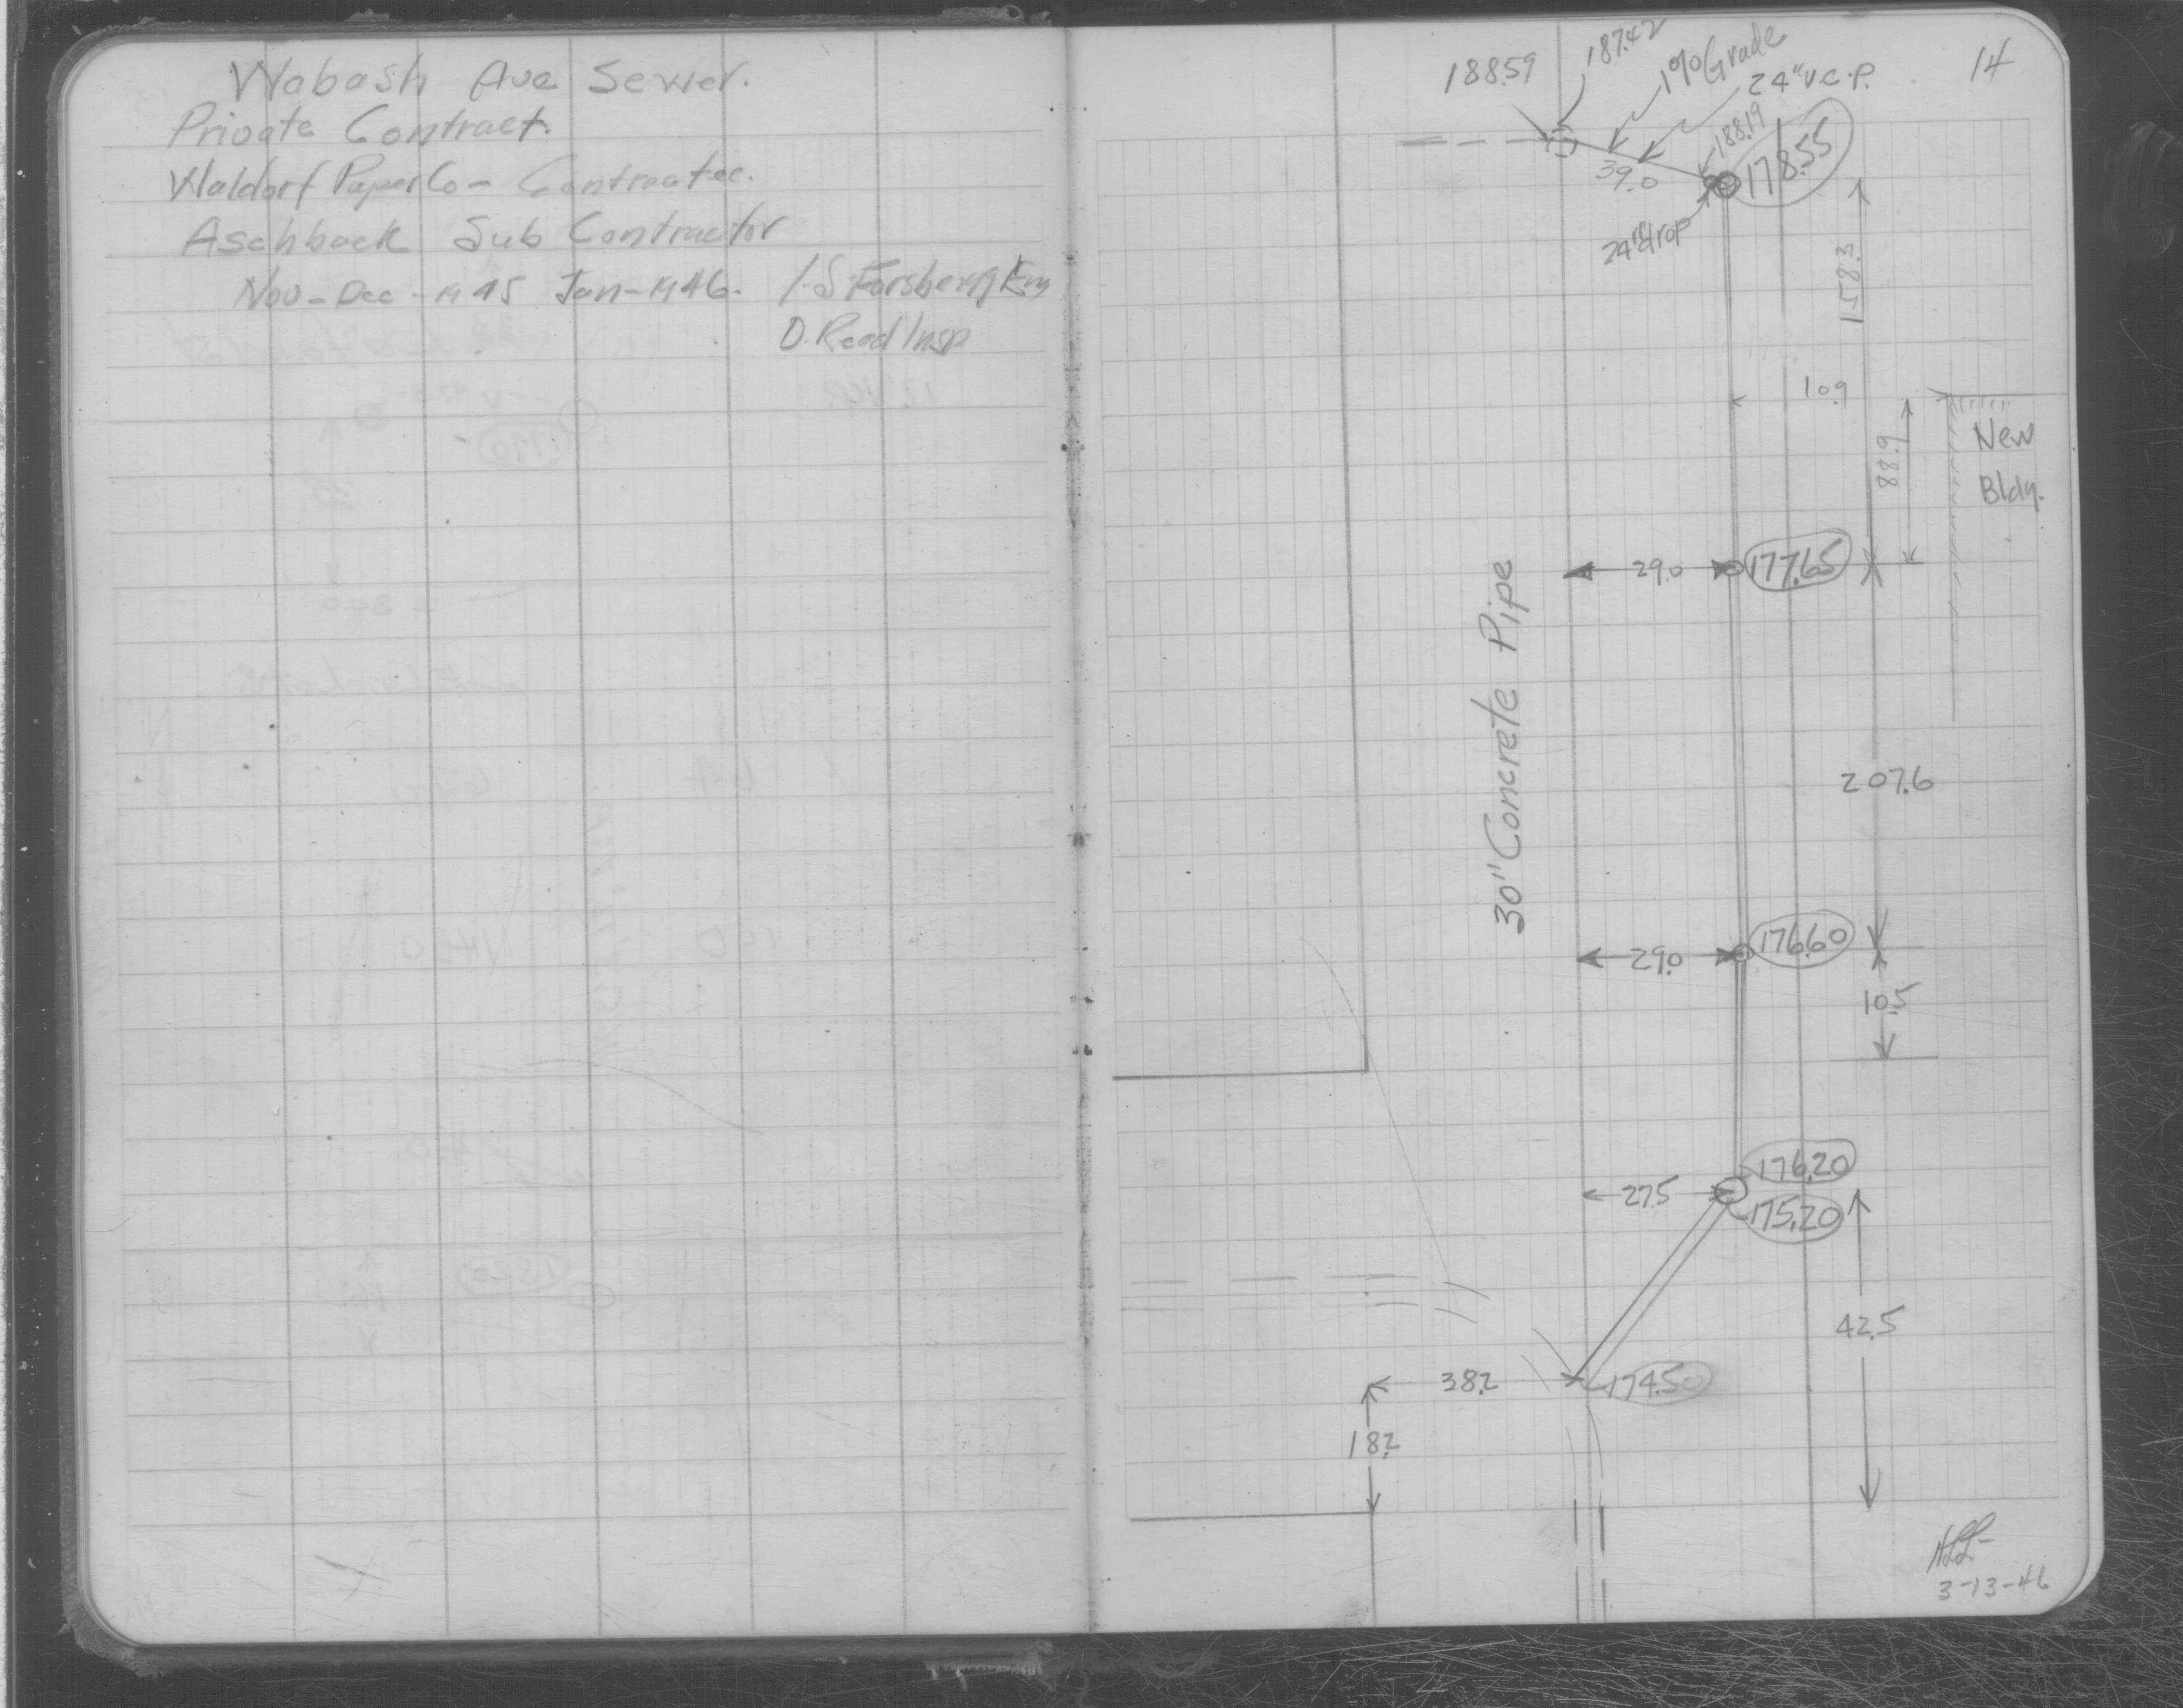 Wabash Ave Sewer.
Private Contract.
Waldorf Paper Co - Contractee.
Aschback Sub Contractor
Nov - Dec - 1945 Jan - 1946. I.S Forsberg Eng
O. Read Insp
14
188.59
187.42
1% Grade
24" V.C.P.
188.19
39.0
178.55
24" drop
158.3
10.9
88.9
New
Bldg.
29.0
177.65
30" Concrete Pipe
207.6
29.0
176.60
10.5
176.20
27.5
175.20
42.5
38.2
174.50
18.2
3-13-46